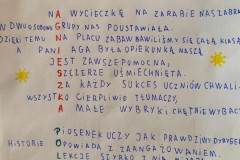 NA WYCIECZKĘ NA ZARABIE NAS ZABRA
W DWUOSOBOWE GRUPY NAS POUSTAWIAŁA.
DZIĘKI TEMU NA PLACU ZABAW BAWILIŚMY SIĘ CAŁĄ KLASĄ
A PANI AGA BYŁA OPIEKUNKĄ NASZĄ
JEST ZAWSZE POMOCNA,
SZCZERZE UŚMIECHNIĘTA.
ZA KAŻDY SUKCES UCZNIÓW CHWALI
WSZYSTKO CIERPLIWIE TŁUMACZY,
A MAŁE WYBRYKI CHĘTNIE WYBACZ
PIOSENEK UCZY JAK PRAWDZIWY DYRYGEN
HISTORIE OPOWIADA Z ZAANGAŻOWANIEM.
LEKCJE SZYBKO Z NIĄ